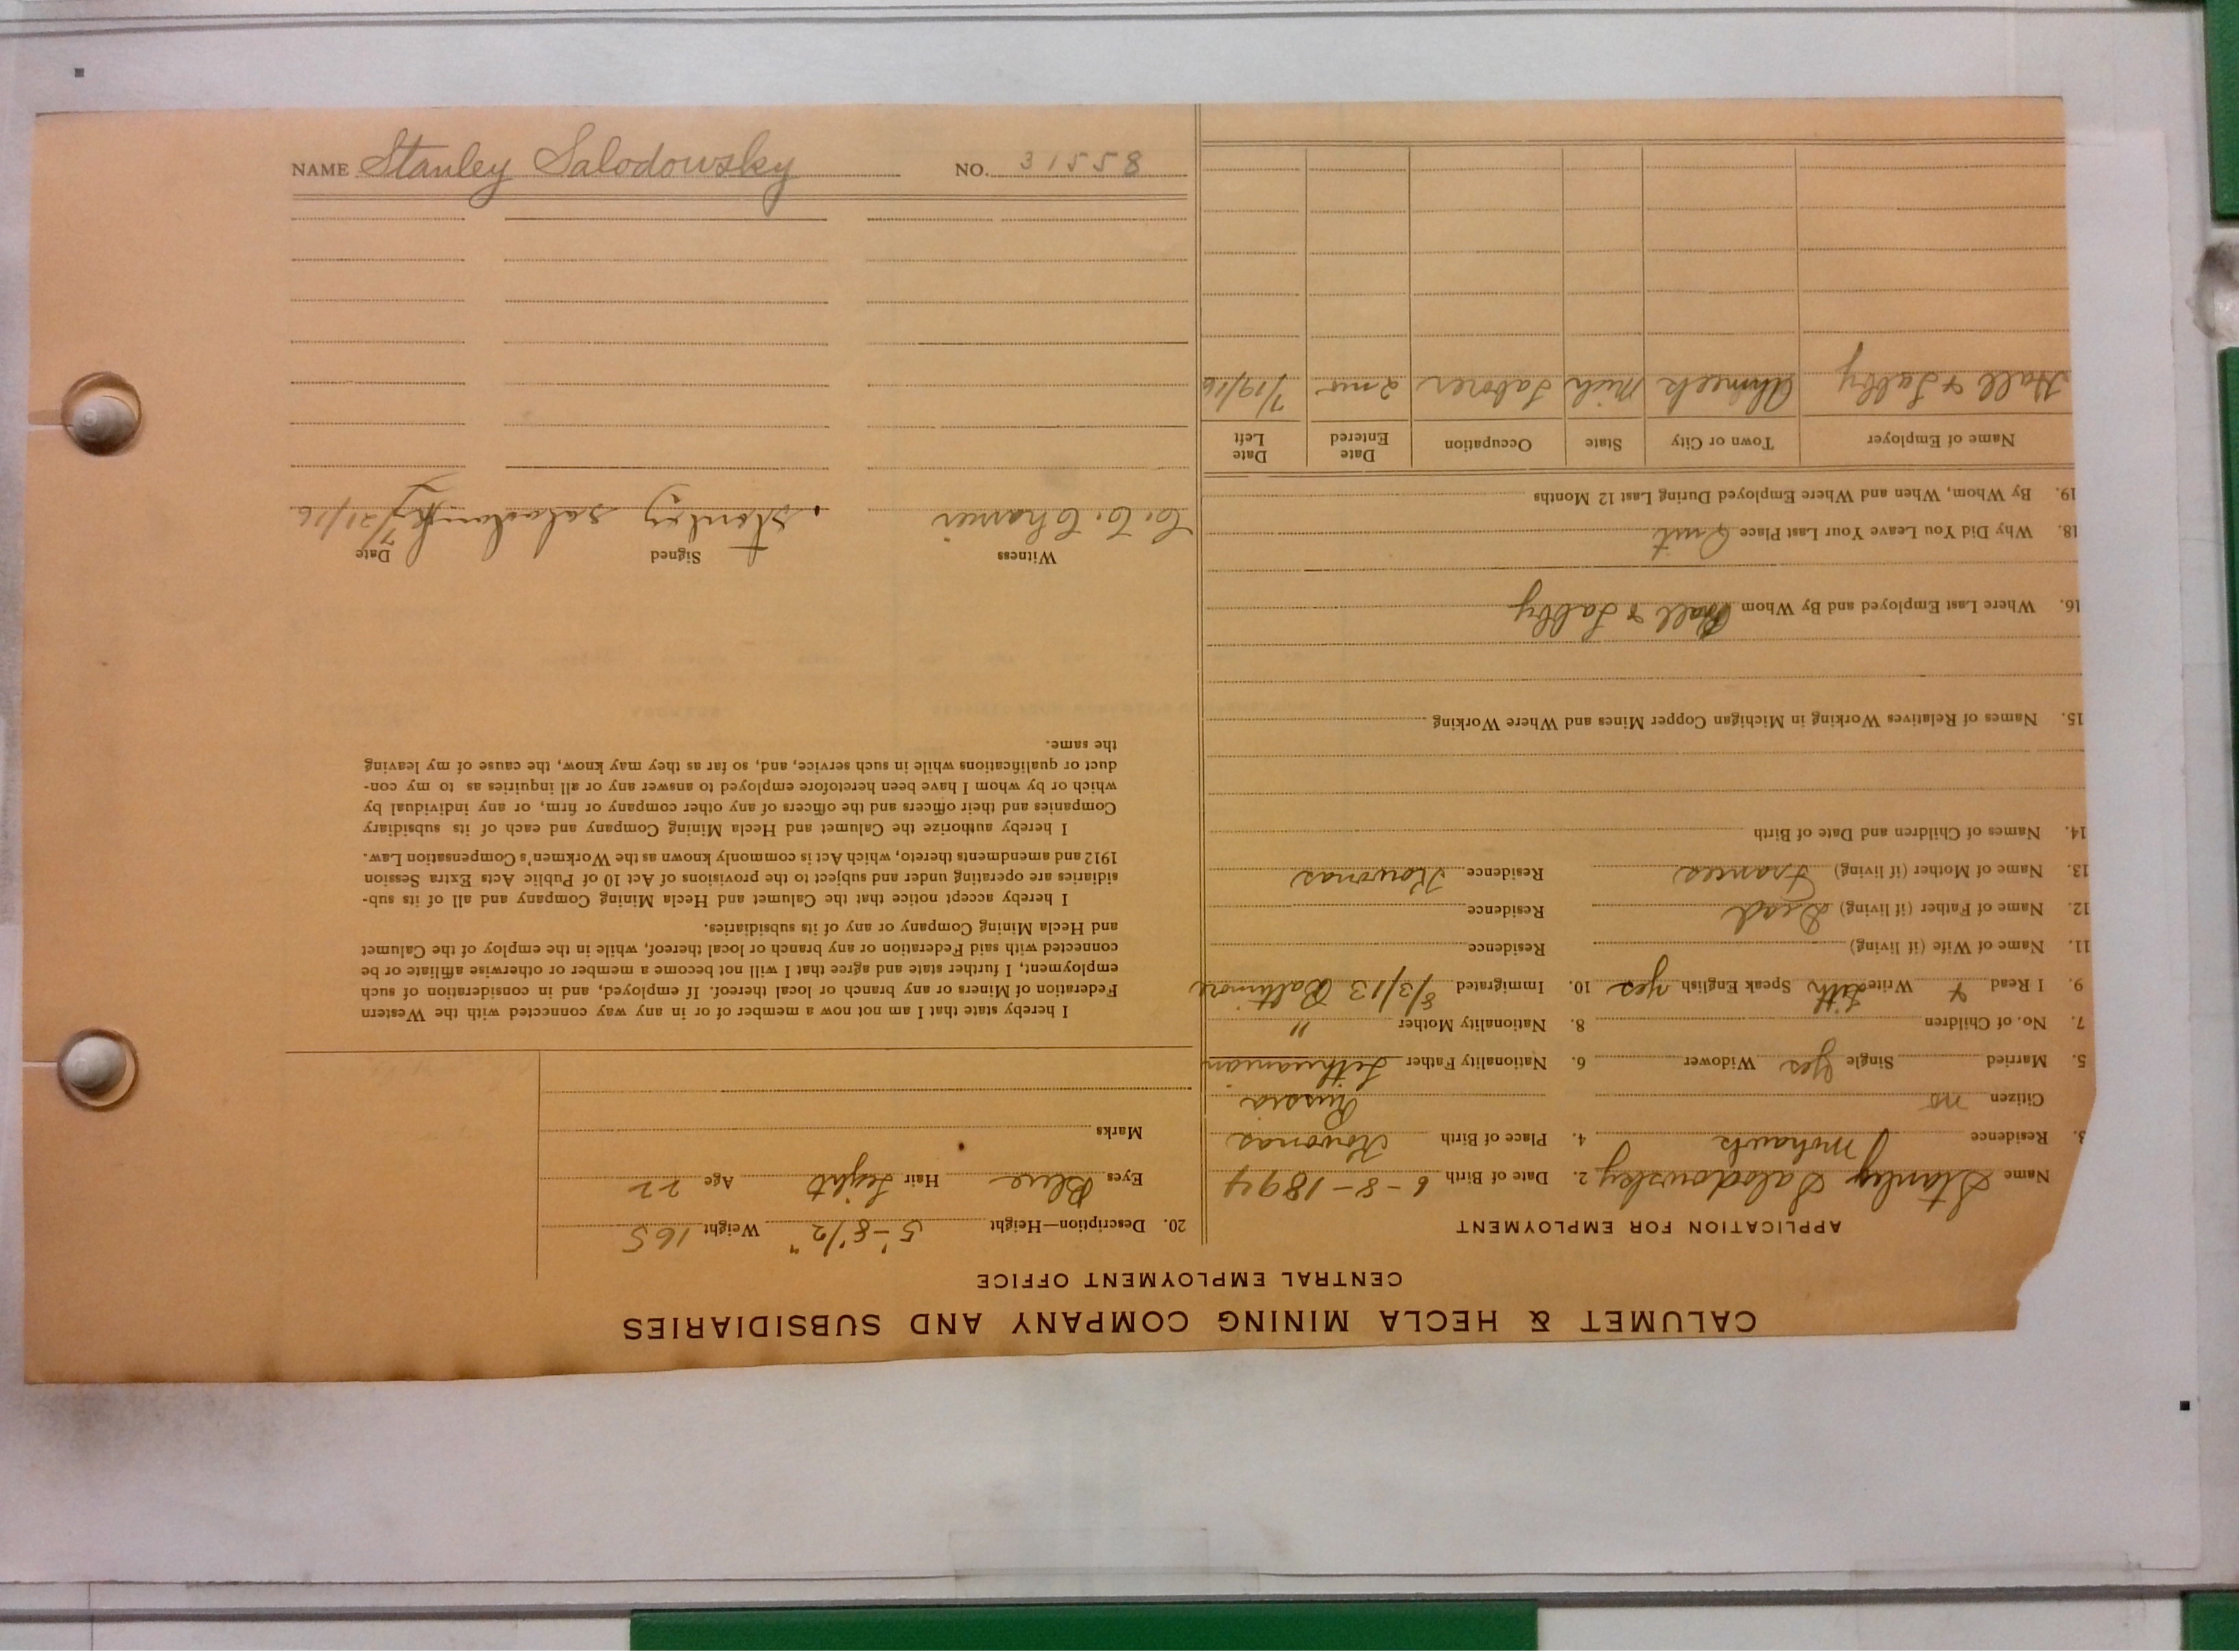 NAME Stanley Salodowsky NO. 31558
CALUMET & HECLA MINING COMPANY AND SUBSIDIARIES
CENTRAL EMPLOYMENT OFFICE
APPLICATION FOR EMPLOYMENT
Name Stanley Salodowsky 2. Date of Birth 6-8-1894
3. Residence Mohawk 4. Place of Birth Kowonas
Citizen no Russia
5. Married Single Yes Widower 6. Nationality Father Lithuanian
7. No. of Children 8. Nationality Mother "
9. I Read & Write Lith Speak English yes 10. Immigrated 8/3/13 Baltimore
11. Name of Wife (if living) Residence
12. Name of Father (if living) Dead Residence
13. Name of Mother (if living) Frances Residence Kowonas
14. Names of Children and Date of Birth
15. Names of Relatives Working in Michigan Copper Mines and Where Working
16. Where Last Employed and By Whom Hall & Salby
18. Why Did You Leave Your Last Place Quit
19. By Whom, When and Where Employed During Last 12 Months
Name of Employer Town or City State Occupation Date Entered Date Left
Hall & Salby Ahmeek Mich Laborer 2 mos 7/19/16
20. Description—Height 5'-8 1/2" Weight 165
Eyes Blue Hair Light Age 22
Marks
I hereby state that I am not now a member of or in any way connected with the Western
Federation of Miners or any branch or local thereof. If employed, and in consideration of such
employment, I further state and agree that I will not become a member or otherwise affiliate or be
connected with said Federation or any branch or local thereof, while in the employ of the Calumet
and Hecla Mining Company or any of its subsidiaries.
I hereby accept notice that the Calumet and Hecla Mining Company and all of its sub-
sidiaries are operating under and subject to the provisions of Act 10 of Public Acts Extra Session
1912 and amendments thereto, which Act is commonly known as the Workmen's Compensation Law.
I hereby authorize the Calumet and Hecla Mining Company and each of its subsidiary
Companies and their officers and the officers of any other company or firm, or any individual by
which or by whom I have been heretofore employed to answer any or all inquiries as to my con-
duct or qualifications while in such service, and, so far as they may know, the cause of my leaving
the same.
Witness Signed Date
Stanley Salodowsky 7/21/16